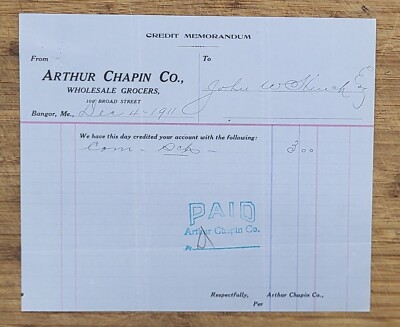 CREDIT MEMORANDUM
From
To
ARTHUR CHAPIN CO.,
WHOLESALE GROCERS,
100 BROAD STREET
John W
Bangor, Me., Dec 4-1911
We have this day credited your account with the following:
Com - Sch 3 00
PAID
Arthur Chapin Co.
Respectfully, Arthur Chapin Co.,
Per